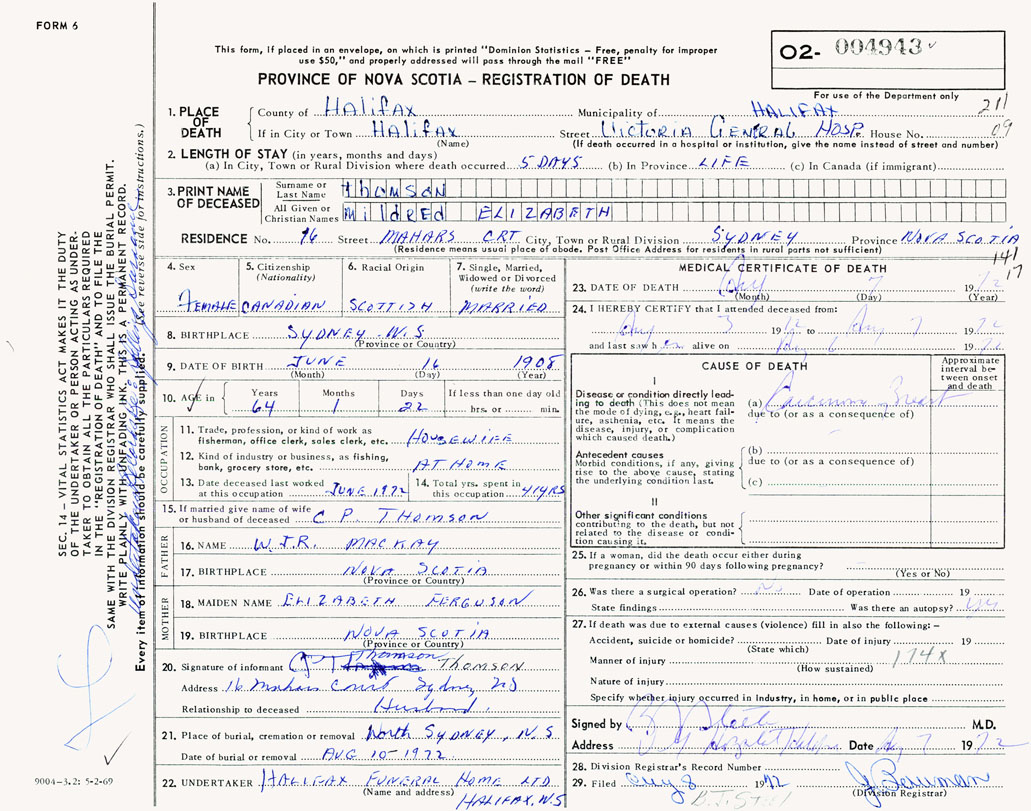 FORM 6
This form, if placed in an envelope, on which is printed "Dominion Statistics – Free, penalty for improper
use $50," and properly addressed will pass through the mail "FREE"
PROVINCE OF NOVA SCOTIA – REGISTRATION OF DEATH
02- 004943
For use of the Department only
211
09
1. PLACE OF DEATH
County of Halifax Municipality of HALIFAX
If in City or Town Halifax Street Victoria General Hosp. House No.
(Name) (If death occurred in a hospital or institution, give the name instead of street and number)
2. LENGTH OF STAY (in years, months and days)
(a) In City, Town or Rural Division where death occurred 5 DAYS (b) In Province LIFE (c) In Canada (if immigrant)
3. PRINT NAME OF DECEASED
Surname or Last Name Thomson
All Given or Christian Names Mildred ELIZABETH
RESIDENCE No. 16 Street MAHARS CRT City, Town or Rural Division SYDNEY Province NOVA SCOTIA
(Residence means usual place of abode. Post Office Address for residents in rural parts not sufficient)
141
17
4. Sex Female
5. Citizenship (Nationality) CANADIAN
6. Racial Origin SCOTTISH
7. Single, Married, Widowed or Divorced (write the word) MARRIED
8. BIRTHPLACE SYDNEY N.S.
(Province or Country)
9. DATE OF BIRTH JUNE 16 1908
(Month) (Day) (Year)
10. AGE in Years 64 Months 1 Days 22 If less than one day old hrs. or min.
OCCUPATION
11. Trade, profession, or kind of work as fisherman, office clerk, sales clerk, etc. HOUSEWIFE
12. Kind of industry or business, as fishing, bank, grocery store, etc. AT HOME
13. Date deceased last worked at this occupation JUNE 1972
14. Total yrs. spent in this occupation 41 YRS
15. If married give name of wife or husband of deceased C P. THOMSON
FATHER
16. NAME W.J.R. MACKAY
17. BIRTHPLACE NOVA SCOTIA
(Province or Country)
MOTHER
18. MAIDEN NAME ELIZABETH FERGUSON
19. BIRTHPLACE NOVA SCOTIA
(Province or Country)
20. Signature of informant Thomson THOMSON
Address 16 Mahars Court Sydney NS
Relationship to deceased Husband
21. Place of burial, cremation or removal North SYDNEY, N.S.
Date of burial or removal AUG 10-1972
22. UNDERTAKER HALIFAX FUNERAL HOME LTD.
(Name and address) HALIFAX, N.S
MEDICAL CERTIFICATE OF DEATH
23. DATE OF DEATH Aug 7 1972
(Month) (Day) (Year)
24. I HEREBY CERTIFY that I attended deceased from:
Aug 3 1972 to Aug 7 1972
and last saw her alive on Aug 6 1972
CAUSE OF DEATH
Approximate interval between onset and death
I
Disease or condition directly leading to death (This does not mean the mode of dying, e.g., heart failure, asthenia, etc. It means the disease, injury, or complication which caused death.)
(a) Carcinoma Breast
due to (or as a consequence of)
Antecedent causes
Morbid conditions, if any, giving rise to the above cause, stating the underlying condition last.
(b)
due to (or as a consequence of)
(c)
II
Other significant conditions
contributing to the death, but not related to the disease or condition causing it.
25. If a woman, did the death occur either during
pregnancy or within 90 days following pregnancy?
(Yes or No)
26. Was there a surgical operation? No Date of operation 19
State findings Was there an autopsy? yes
27. If death was due to external causes (violence) fill in also the following: –
Accident, suicide or homicide? Date of injury 19
(State which)
Manner of injury 174X
(How sustained)
Nature of injury
Specify whether injury occurred in Industry, in home, or in public place
Signed by M.D.
Address Date Aug 7 1972
28. Division Registrar's Record Number
29. Filed Aug 8 1972
(Division Registrar)
SEC. 14 – VITAL STATISTICS ACT MAKES IT THE DUTY
OF THE UNDERTAKER OR PERSON ACTING AS UNDER-
TAKER TO OBTAIN ALL THE PARTICULARS REQUIRED
IN THE "REGISTRATION OF DEATH" AND TO FILE THE
SAME WITH THE DIVISION REGISTRAR WHO SHALL ISSUE THE BURIAL PERMIT.
WRITE PLAINLY WITH UNFADING INK. THIS IS A PERMANENT RECORD.
Every item of information should be carefully supplied. (See reverse side for instructions.)
9004-3.2: 5-2-69